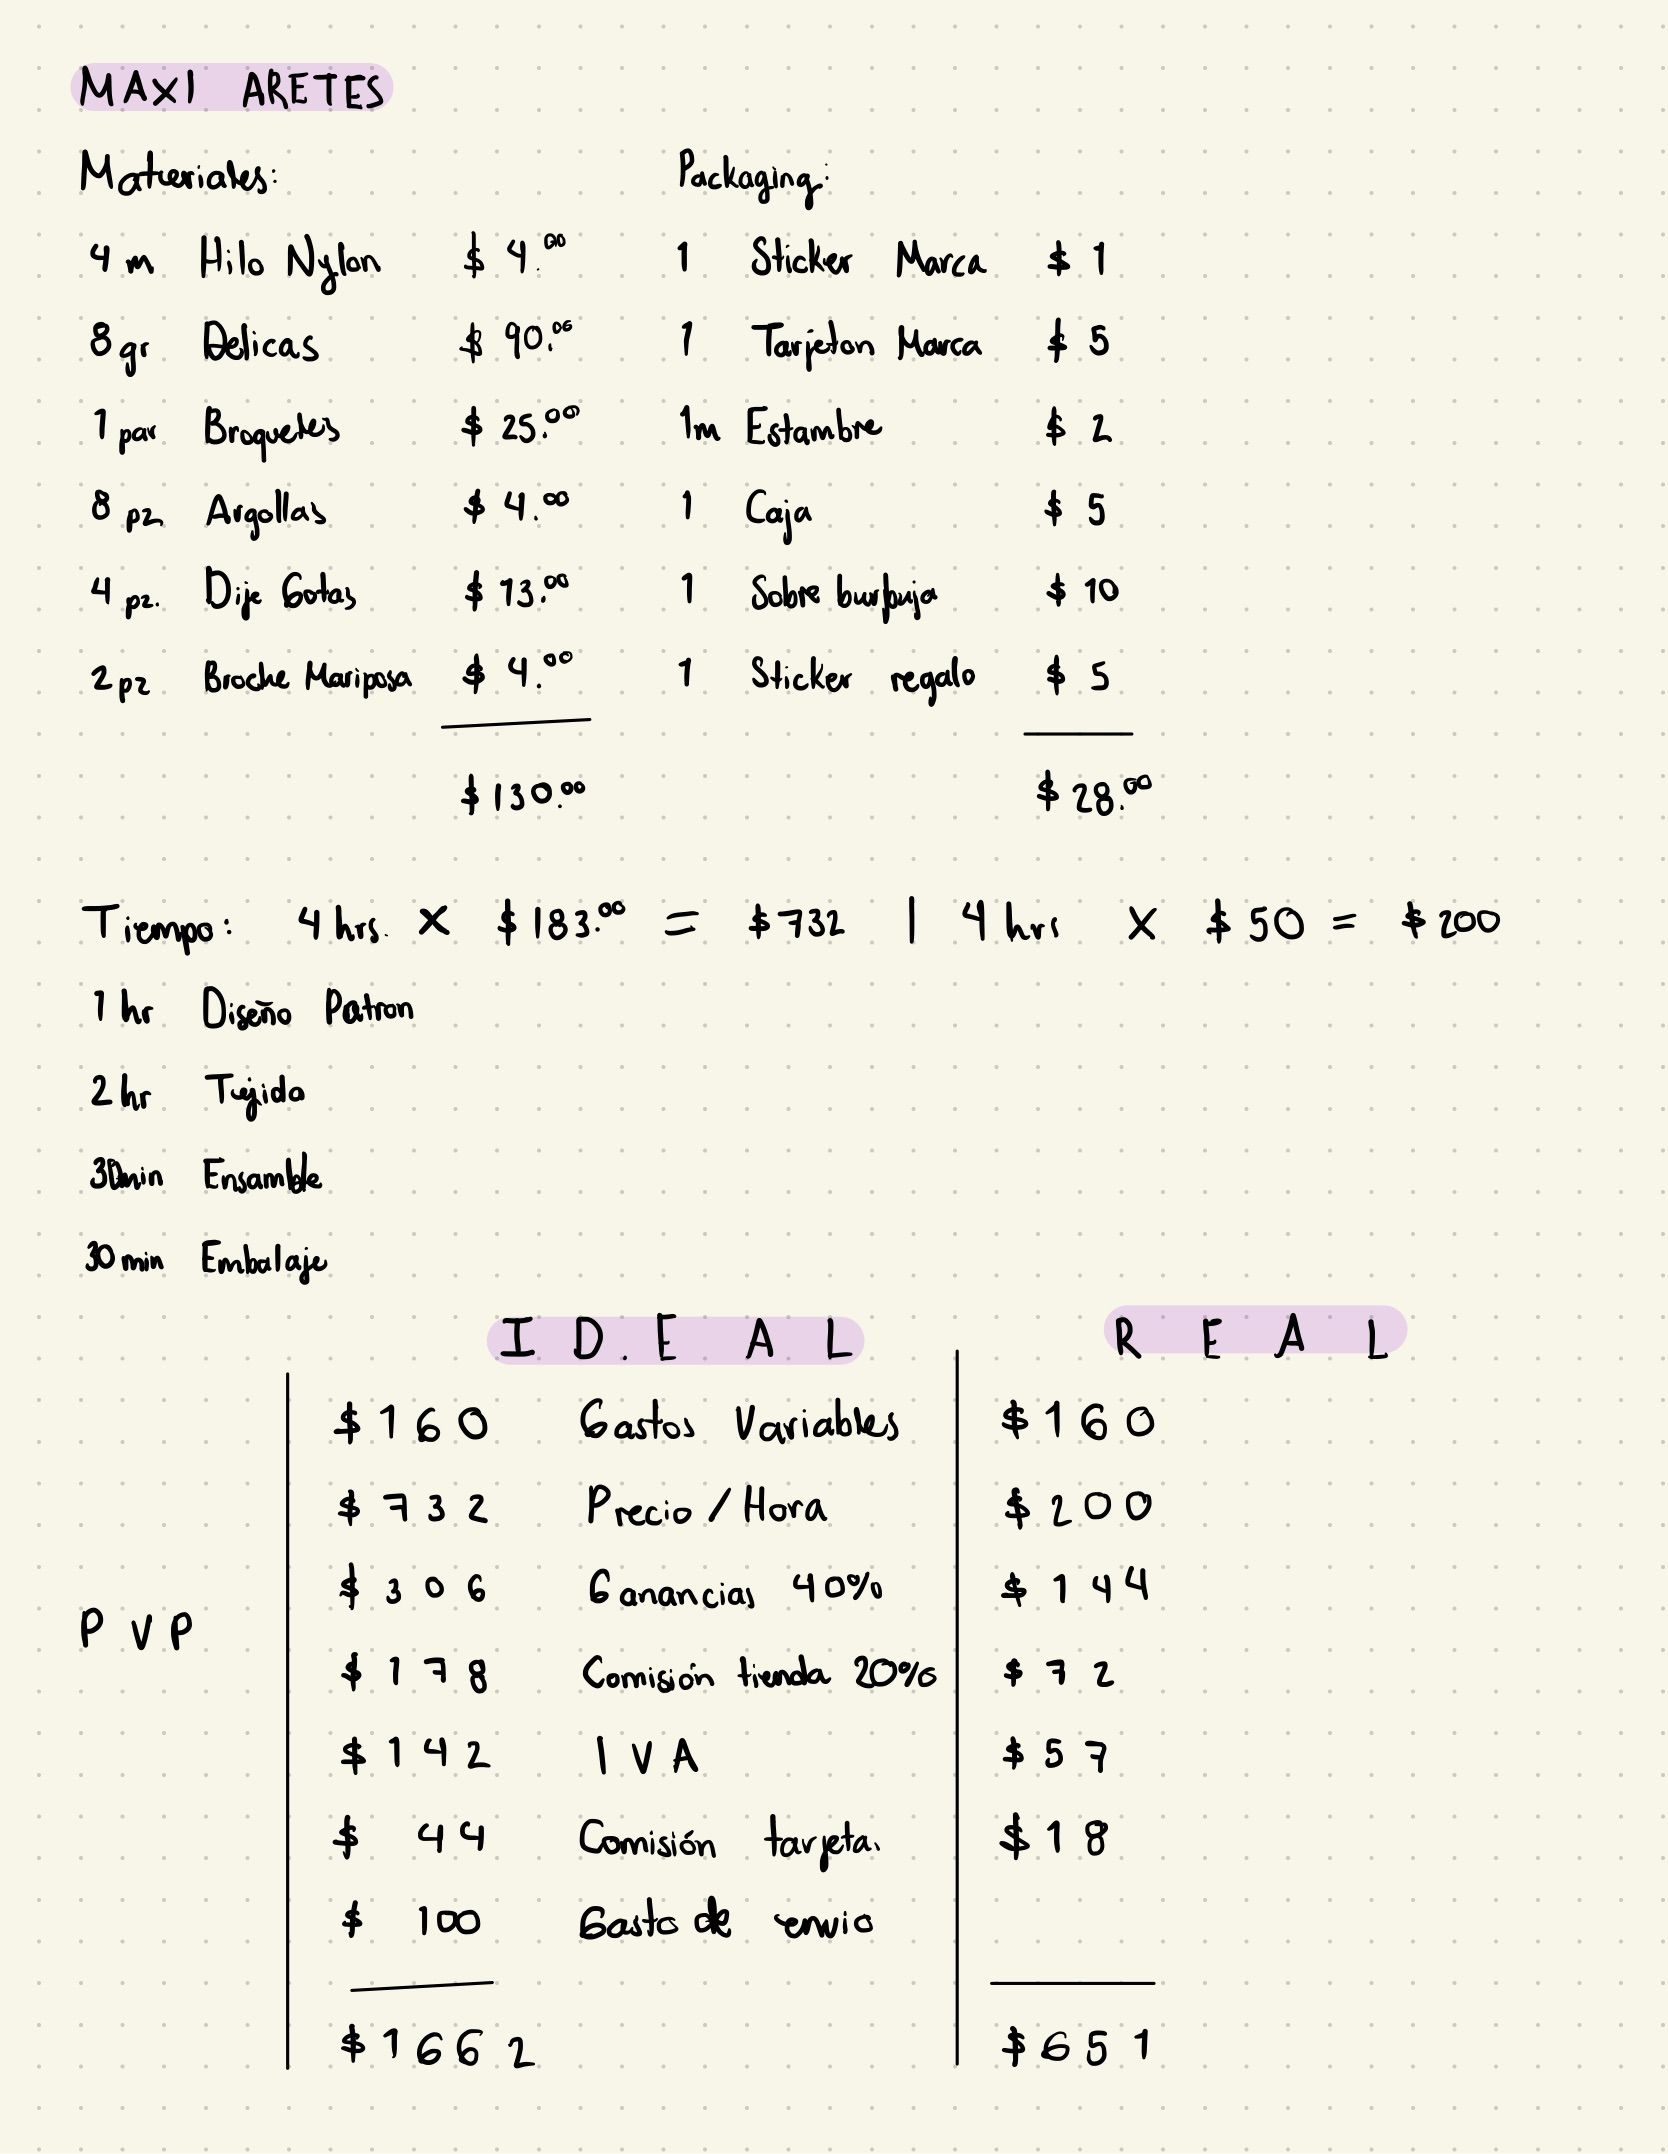 MAXI ARETES
Materiales:
4 m Hilo Nylon $ 4.00
8 gr Delicas $ 90.00
1 par Broqueles $ 25.00
8 pz Argollas $ 4.00
4 pz. Dije Gotas $ 13.00
2 pz Broche Mariposa $ 4.00
$ 130.00
Packaging:
1 Sticker Marca $ 1
1 Tarjeton Marca $ 5
1m Estambre $ 2
1 Caja $ 5
1 Sobre burbuja $ 10
1 Sticker regalo $ 5
$ 28.00
Tiempo: 4 hrs. X $ 183.00 = $ 732 | 4 hrs X $ 50 = $ 200
1 hr Diseño Patron
2 hr Tejido
30min Ensamble
30 min Embalaje
I D. E A L R E A L
$ 160 Gastos Variables $ 160
$ 732 Precio / Hora $ 200
$ 306 Ganancias 40% $ 144
PVP
$ 178 Comisión tienda 20% $ 72
$ 142 IVA $ 57
$ 44 Comisión tarjeta. $ 18
$ 100 Gasto de envio
$ 1662 $ 651